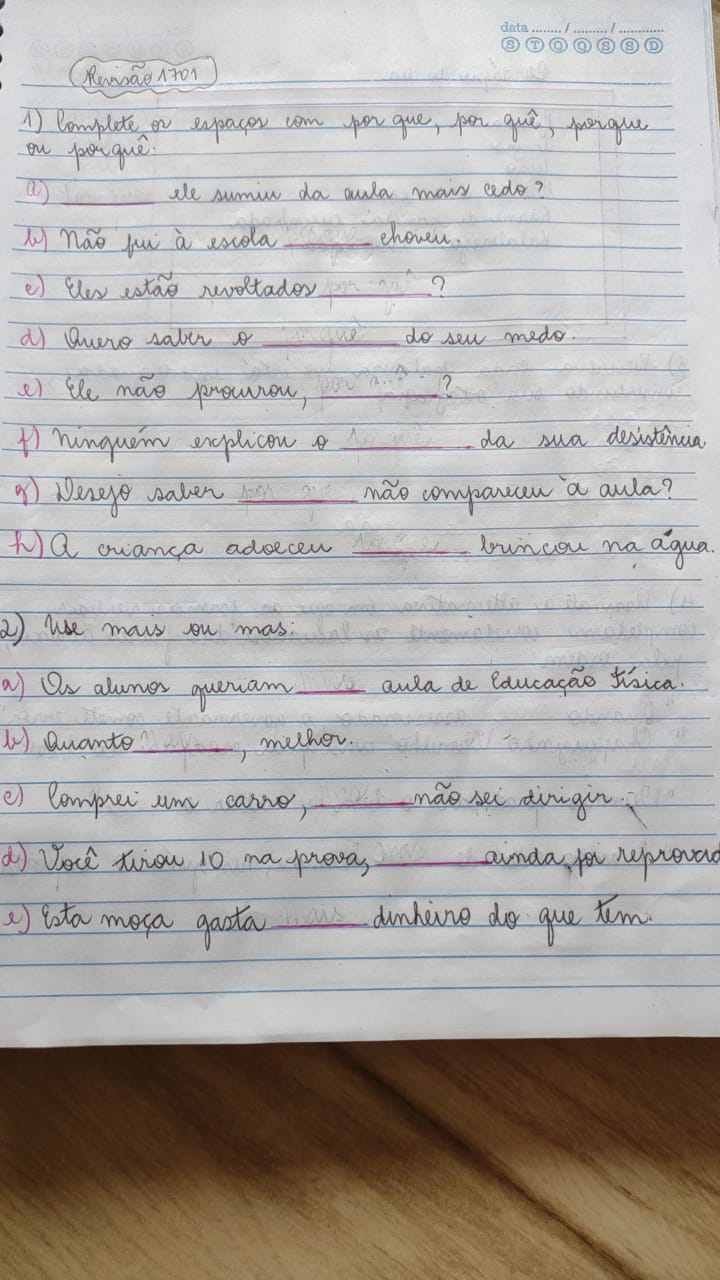 data ......../........./............
S T Q Q S S D
Revisão 1701
1) Complete os espaços com por que, por quê, porque
ou porquê:
a) ________ ele sumiu da aula mais cedo?
b) Não fui à escola ________ choveu.
c) Eles estão revoltados por quê ________?
d) Quero saber o ________ do seu medo.
e) Ele não procurou, ________?
f) Ninguém explicou o ________ da sua desistência
g) Desejo saber por que ________ não compareceu à aula?
h) A criança adoeceu ________ brincou na água.
2) Use mais ou mas:
a) Os alunos queriam ________ aula de Educação Física.
b) Quanto ________, melhor.
c) Comprei um carro, ________ não sei dirigir.
d) Você tirou 10 na prova, ________ ainda, foi reprovad
e) Esta moça gasta mais dinheiro do que tem.